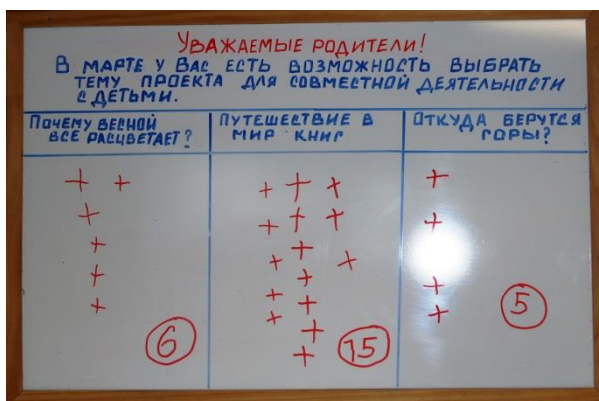 УВАЖАЕМЫЕ РОДИТЕЛИ!
В МАРТЕ У ВАС ЕСТЬ ВОЗМОЖНОСТЬ ВЫБРАТЬ
ТЕМУ ПРОЕКТА ДЛЯ СОВМЕСТНОЙ ДЕЯТЕЛЬНОСТИ
С ДЕТЬМИ.
ПОЧЕМУ ВЕСНОЙ
ВСЕ РАСЦВЕТАЕТ?
6
ПУТЕШЕСТВИЕ В
МИР КНИГ
15
ОТКУДА БЕРУТСЯ
ГОРЫ?
5